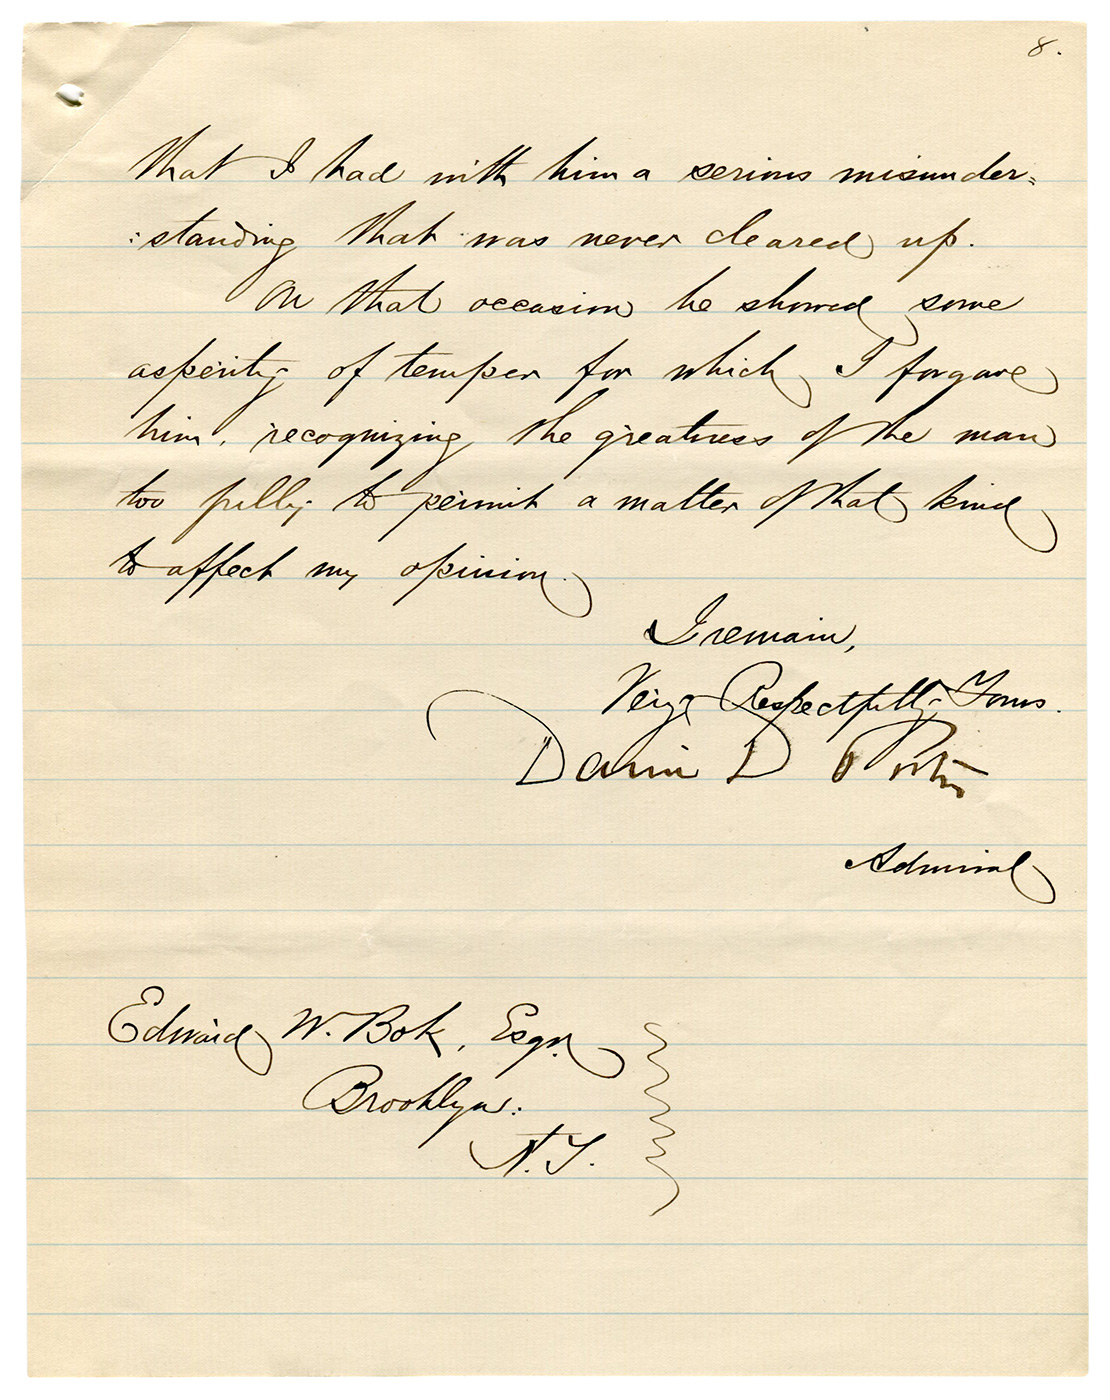 8.
that I had with him a serious misunder=
:standing that was never cleared up.
On that occasion he showed some
asperity of temper for which I forgave
him, recognizing the greatness of the man
too fully to permit a matter of that kind
to affect my opinion.
I remain,
Very Respectfully Yours.
David D Porter
Admiral
Edward W. Bok, Esqr.
Brooklyn.
N.Y.